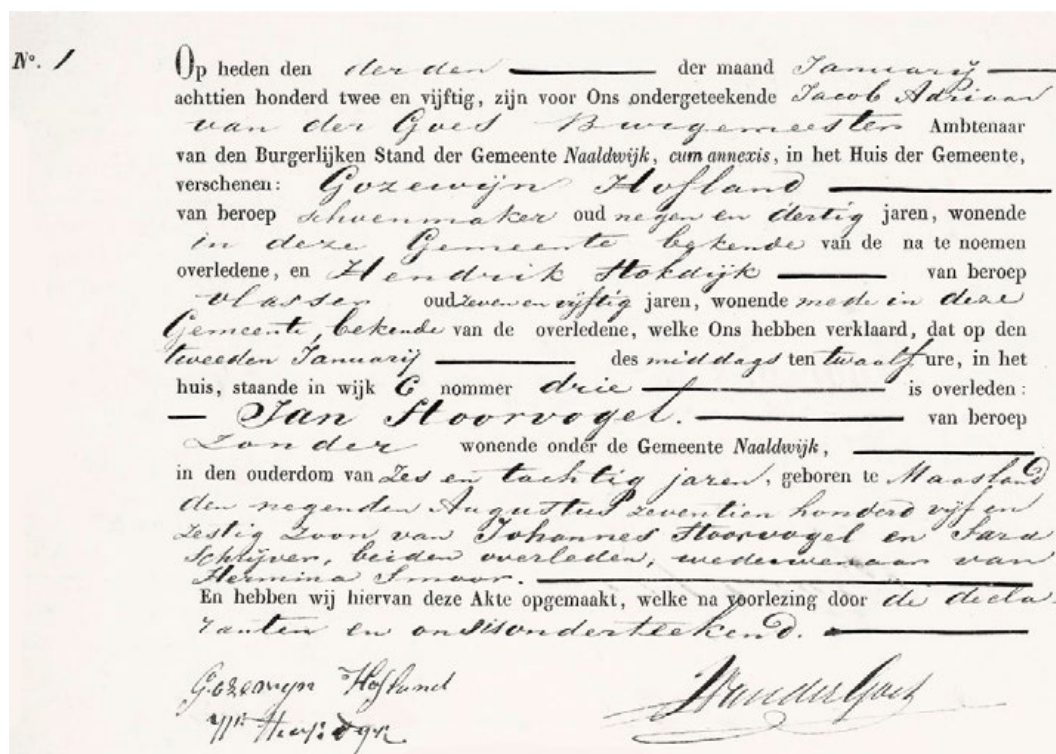 No. 1
Op heden den derden der maand Januarij
achttien honderd twee en vijftig, zijn voor Ons ondergeteekende Jacob Adriaan
van der Goes Burgemeester Ambtenaar
van den Burgerlijken Stand der Gemeente Naaldwijk, cum annexis, in het Huis der Gemeente,
verschenen: Gozewijn Hofland
van beroep schoenmaker oud negen en dertig jaren, wonende
in deze Gemeente bekende van de na te noemen
overledene, en Hendrik Stokdijk van beroep
vlasser oud zeven en vijftig jaren, wonende mede in deze
Gemeente, bekende van de overledene, welke Ons hebben verklaard, dat op den
tweeden Januarij des middags ten twaalf ure, in het
huis, staande in wijk C nommer drie is overleden:
Jan Stoorvogel. van beroep
zonder wonende onder de Gemeente Naaldwijk,
in den ouderdom van zes en tachtig jaren, geboren te Maasland
den negenden Augustus zeventien honderd vijf en
zestig zoon van Johannes Stoorvogel en Sara
Schrijver, beiden overleden, weduwenaar van
Hermina Smoor.
En hebben wij hiervan deze Akte opgemaakt, welke na voorlezing door de decla-
ranten en ons is onderteekend.
Gozewyn Hofland
VanderGoes